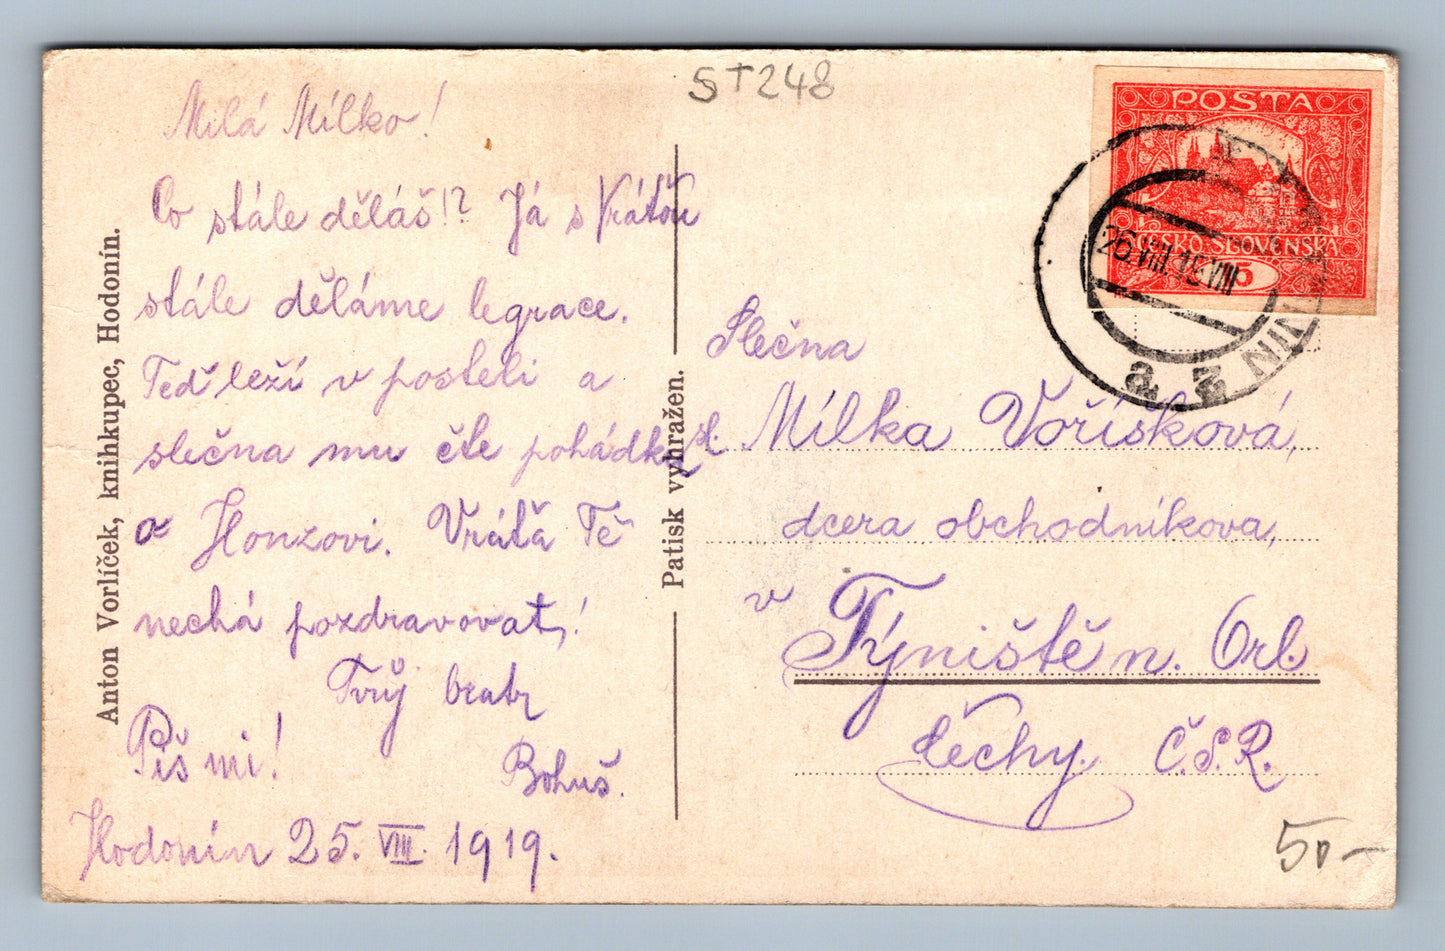 ST248
Milá Mílko!
Co stále děláš!? Já s Vráťou
stále děláme legrace.
Teď leží v posteli a
slečna mu čte pohádky
o Honzovi. Vráťa Tě
nechá pozdravovat!
Tvůj bratr
Piš mi!
Bohuš.
Hodonín 25. VIII. 1919.
Anton Vorlíček, knihkupec, Hodonín.
Patisk vyhražen.
POSTA
ČESKO-SLOVENSKÁ
15
26.VIII.15.VIII
a z
Slečna
sl. Mílka Voříšková,
dcera obchodníkova,
v Týniště n. Orl.
Čechy. Č.S.R.
50-